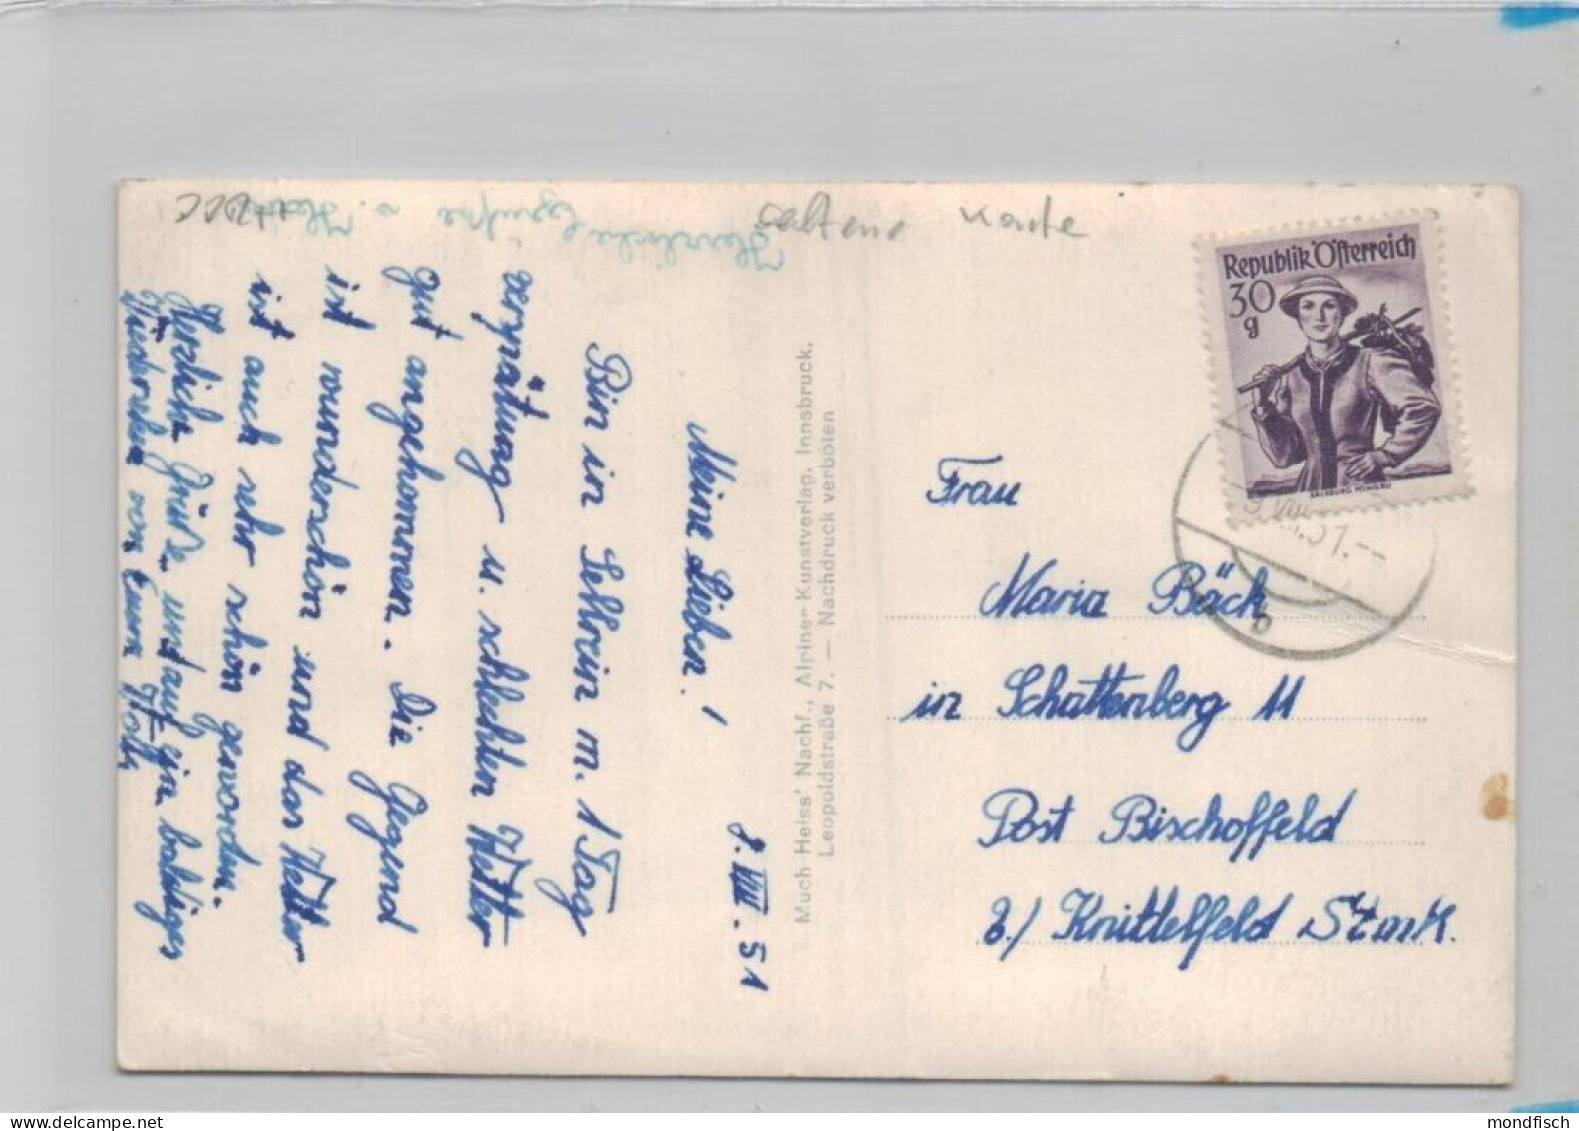 Meine Lieben!
8. VIII. 51
Bin in Sellrain m. 1 Tag
verspätung u. schlechten Wetter
gut angekommen. Die Gegend
ist wunderschön und das Wetter
ist auch sehr schön geworden.
Herzliche Grüße und auf ein baldiges
Wiedersehen von Eurem
Herzliche Grüße v.
seltene Karte
Much Heiss' Nachf., Alpiner Kunstverlag, Innsbruck,
Leopoldstraße 7. — Nachdruck verboten
Republik Österreich
30
g
SALZBURG PONGAU
VIII.51.--
b
Frau
Maria Bäck
in Schattenberg 11
Post Bischoffeld
b./ Knittelfeld Stmk.
mondfisch